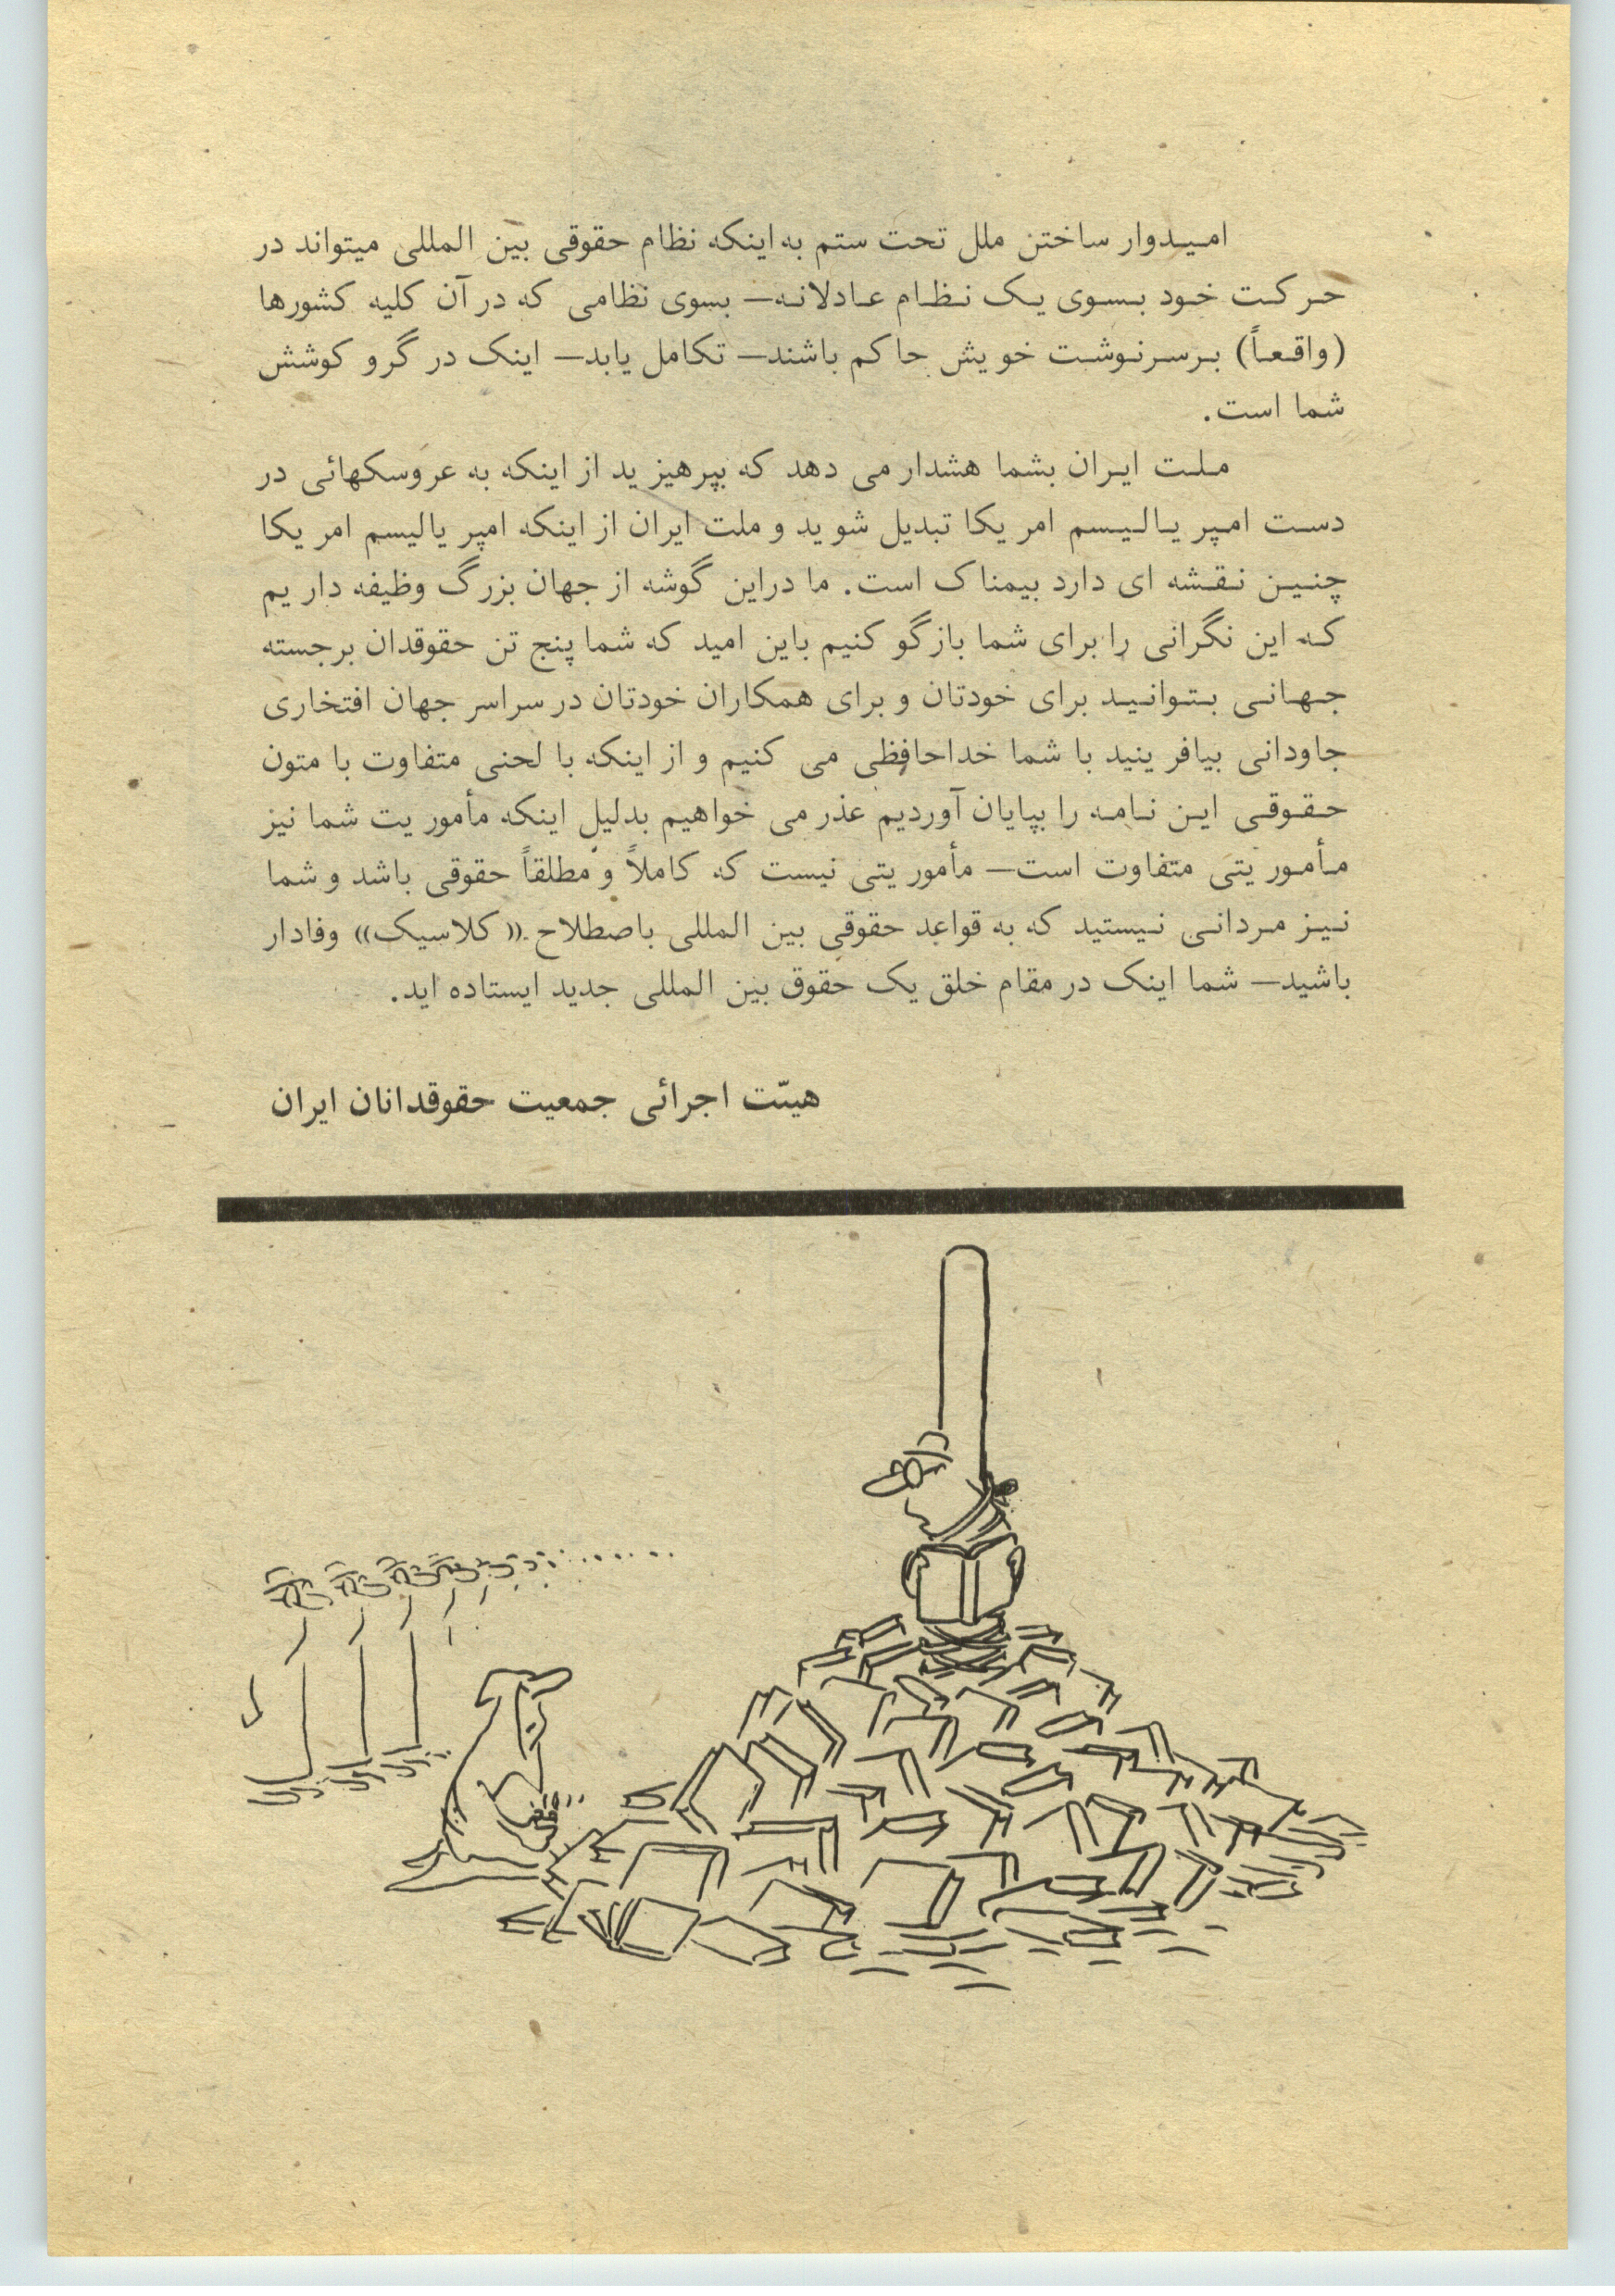 امیدوار ساختن ملل تحت ستم به اینکه نظام حقوقی بین المللی میتواند در
حرکت خود بسوی یک نظام عادلانه— بسوی نظامی که در آن کلیه کشورها
(واقعاً) برسرنوشت خویش حاکم باشند— تکامل یابد— اینک در گرو کوشش
شما است.
ملت ایران بشما هشدار می دهد که بپرهیزید از اینکه به عروسکهائی در
دست امپریالیسم امریکا تبدیل شوید و ملت ایران از اینکه امپریالیسم امریکا
چنین نقشه ای دارد بیمناک است. ما دراین گوشه از جهان بزرگ وظیفه داریم
که این نگرانی را برای شما بازگو کنیم باین امید که شما پنج تن حقوقدان برجسته
جهانی بتوانید برای خودتان و برای همکاران خودتان در سراسر جهان افتخاری
جاودانی بیافرینید با شما خداحافظی می کنیم و از اینکه با لحنی متفاوت با متون
حقوقی این نامه را بپایان آوردیم عذر می خواهیم بدلیل اینکه مأموریت شما نیز
مأموریتی متفاوت است— مأموریتی نیست که کاملاً و مطلقاً حقوقی باشد و شما
نیز مردانی نیستید که به قواعد حقوقی بین المللی باصطلاح «کلاسیک» وفادار
باشید— شما اینک در مقام خلق یک حقوق بین المللی جدید ایستاده اید.
هیئت اجرائی جمعیت حقوقدانان ایران